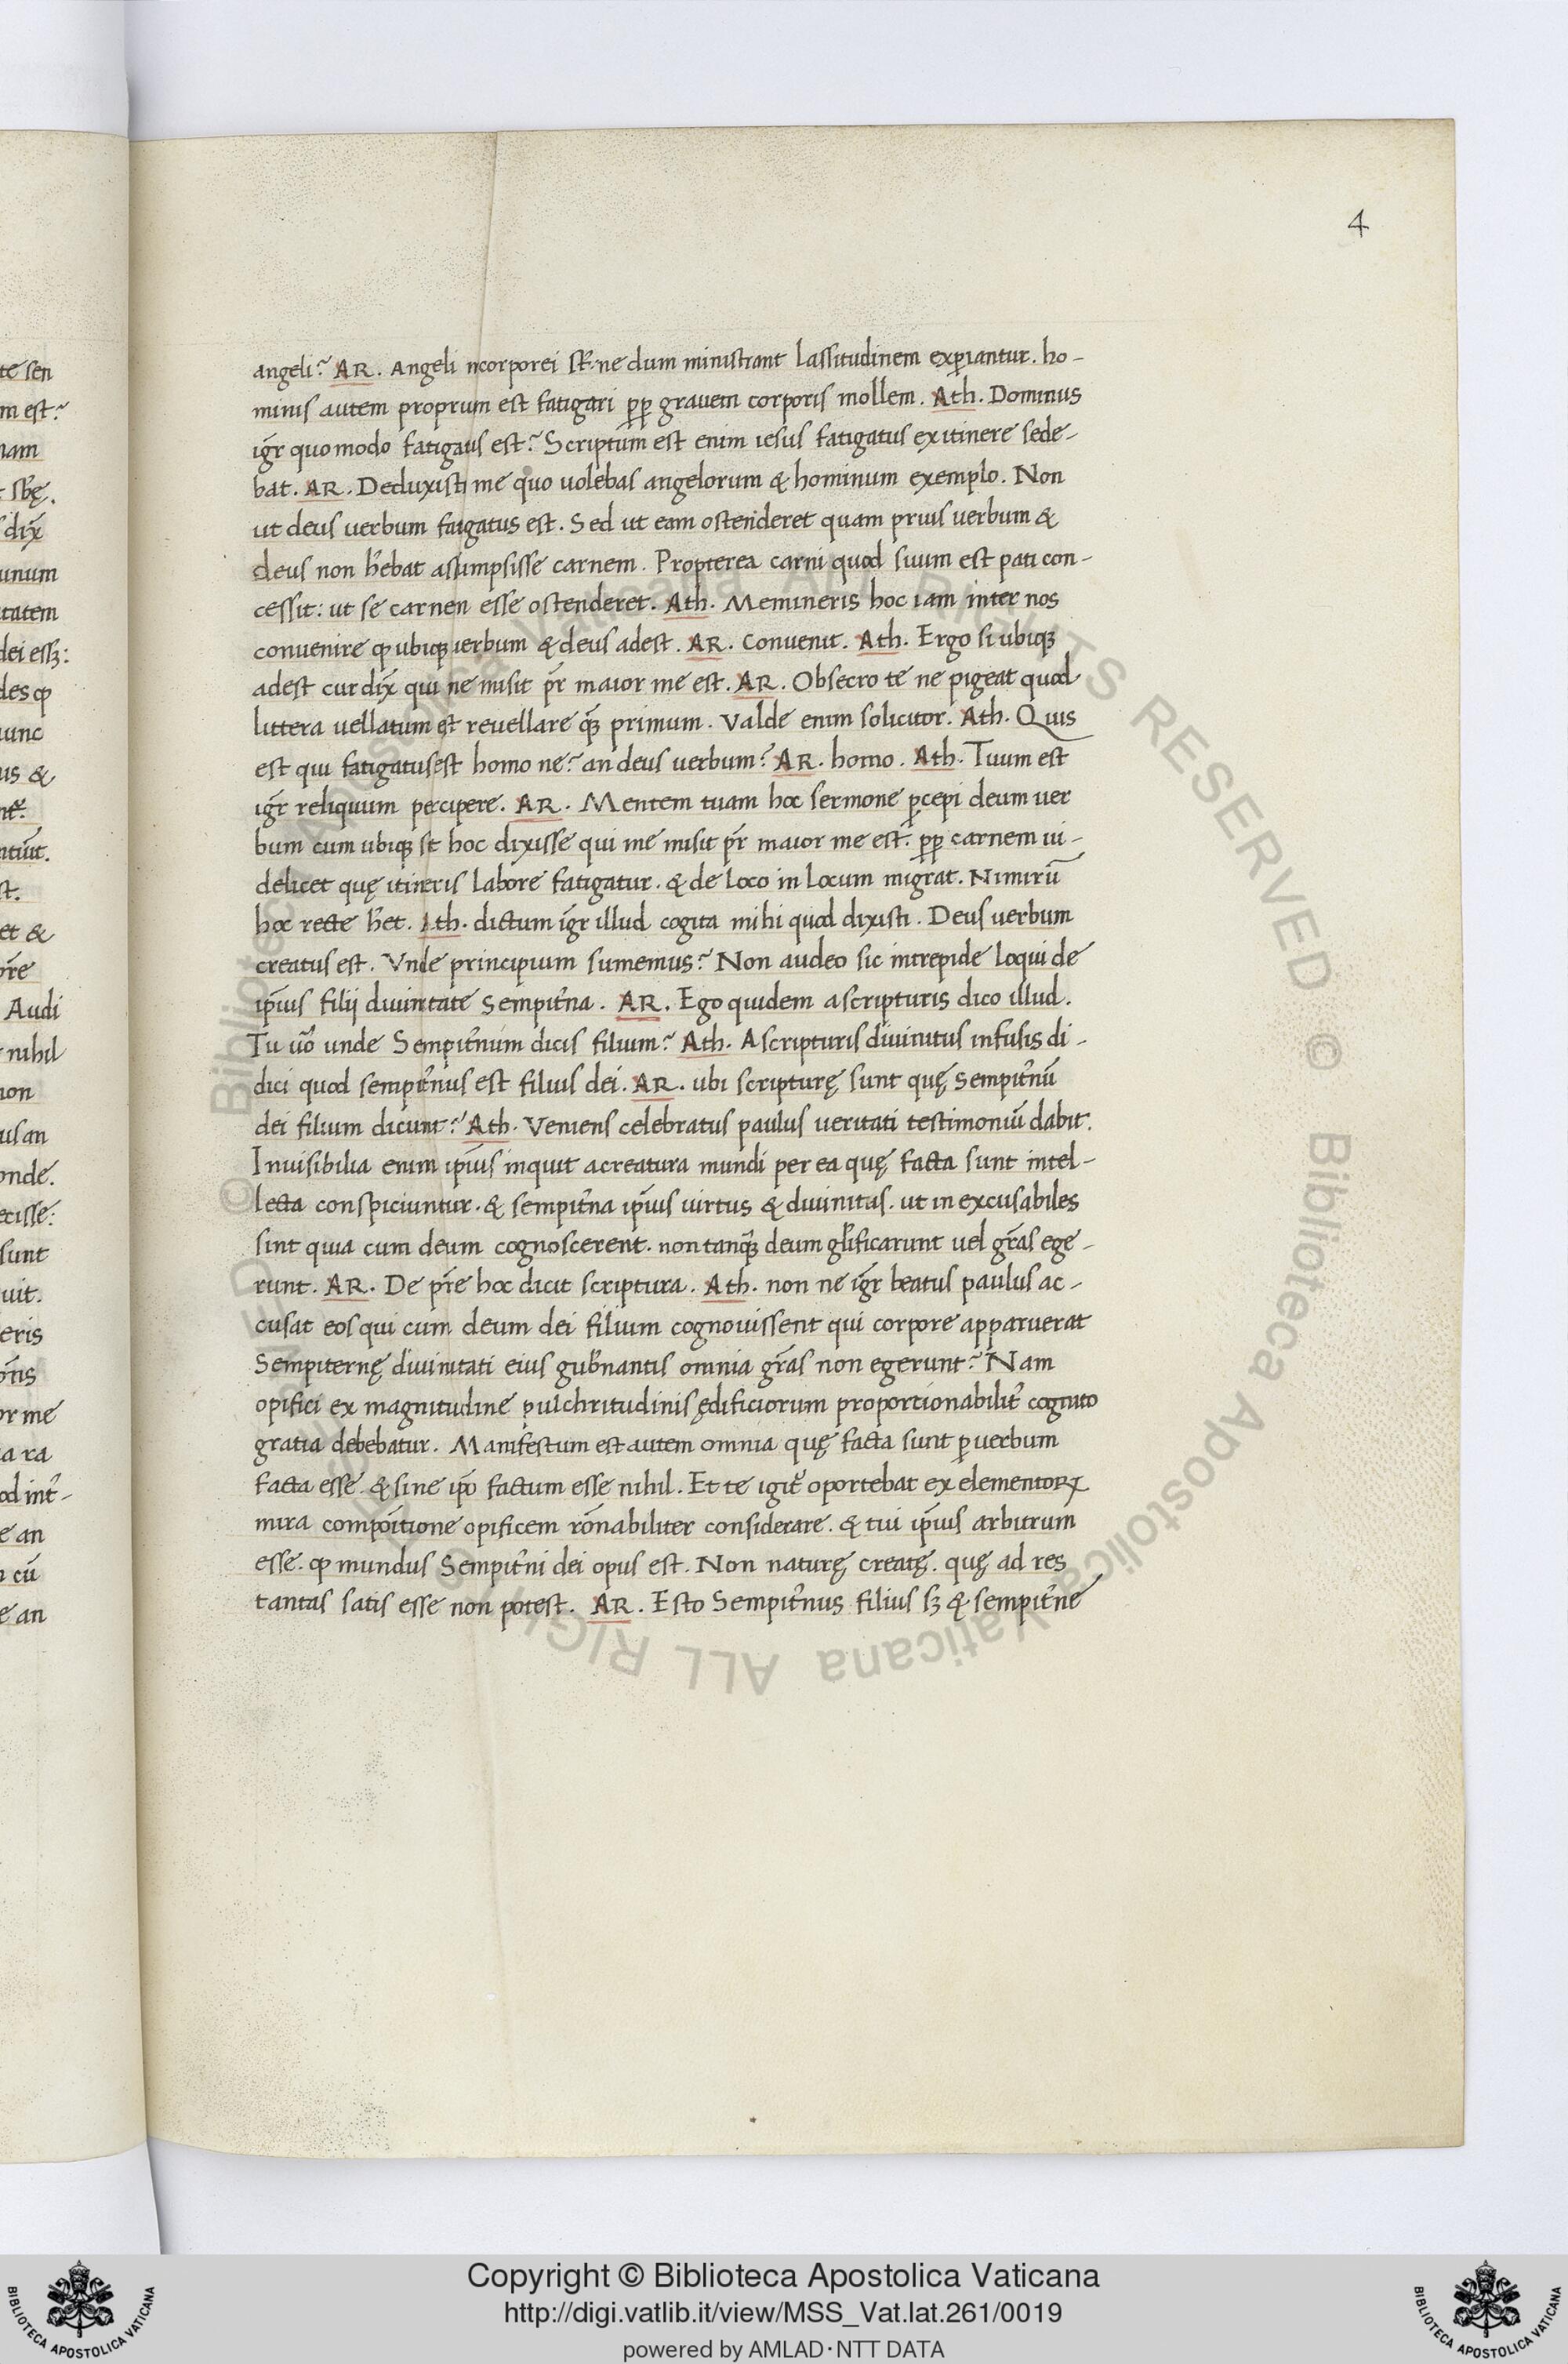 4
angeli? AR. Angeli incorporei st̄. ne dum ministrant lassitudinem exꝑiantur. ho-
minis autem proprium est fatigari ꝓpꝓ grauem corporis mollem. Ath. Dominus
igr̄ quomodo fatigatus est? Scriptum est enim iesus fatigatus ex itinere sede-
bat. AR. Deduxisti me quo uolebas angelorum & hominum exemplo. Non
ut deus uerbum fatigatus est. Sed ut eam ostenderet quam prius uerbum &
deus non hēbat assumpsisse carnem. Propterea carni quod suum est pati con-
cessit: ut se carnem esse ostenderet. Ath. Memineris hoc iam inter nos
conuenire ꝙ ubiqꝫ uerbum & deus adest. AR. Conuenit. Ath. Ergo si ubiqꝫ
adest cur dix̄ qui me misit pr̄ maior me est. AR. Obsecro te ne pigeat quod
littera uellatum est reuellare qꝫ̄ primum. Valde enim solicitor. Ath. Quis
est qui fatigatus est homo ne? an deus uerbum? AR. homo. Ath. Tuum est
igr̄ reliquum percipere. AR. Mentem tuam hoc sermone ꝑcepi deum uer
bum cum ubiqꝫ sit hoc dixisse qui me misit pr̄ maior me est. ꝓpꝓ carnem ui-
delicet quę itineris labore fatigatur. & de loco in locum migrat. Nimirū
hoc recte hēt. Ath. dictum igr̄ illud cogita mihi quod dixisti. Deus uerbum
creatus est. Vnde principium sumemus? Non audeo sic intrepide loqui de
ip̄ius filij diuinitate sempit̄na. AR. Ego quidem a scripturis dico illud.
Tu uō unde Sempit̄num dicis filium? Ath. A scripturis diuinitus infusis di-
dici quod sempit̄nus est filius dei. AR. ubi scripturę sunt quę sempit̄nū
dei filium dicunt? Ath. Veniens celebratus paulus ueritati testimoniū dabit.
Inuisibilia enim ip̄ius inquit a creatura mundi per ea quę facta sunt intel-
lecta conspiciuntur. & sempit̄na ip̄ius uirtus & diuinitas. ut in excusabiles
sint quia cum deum cognoscerent. non tanqꝫ̄ deum gl̄ificarunt uel gr̄as ege-
runt. AR. De pr̄e hoc dicit scriptura. Ath. non ne igr̄ beatus paulus ac-
cusat eos qui cum deum dei filium cognouissent qui corpore apparuerat
Sempiternę diuinitati eius gub̄nantis omnia gr̄as non egerunt? Nam
opifici ex magnitudine pulchritudinis ędificiorum proportionabilit̄ cognito
gratia debebatur. Manifestum est autem omnia quę facta sunt ꝑ uerbum
facta esse. & sine ip̄o factum esse nihil. Et te igit̄ oportebat ex elementoꝝ
mira compōitione opificem rōnabiliter considerare. & tui ip̄ius arbitrum
esse. ꝙ mundus Sempit̄ni dei opus est. Non naturę creatę. quę ad res
tantas satis esse non potest. AR. Esto Sempit̄nus filius sꝫ & sempit̄ne
Copyright © Biblioteca Apostolica Vaticana
http://digi.vatlib.it/view/MSS_Vat.lat.261/0019
powered by AMLAD·NTT DATA